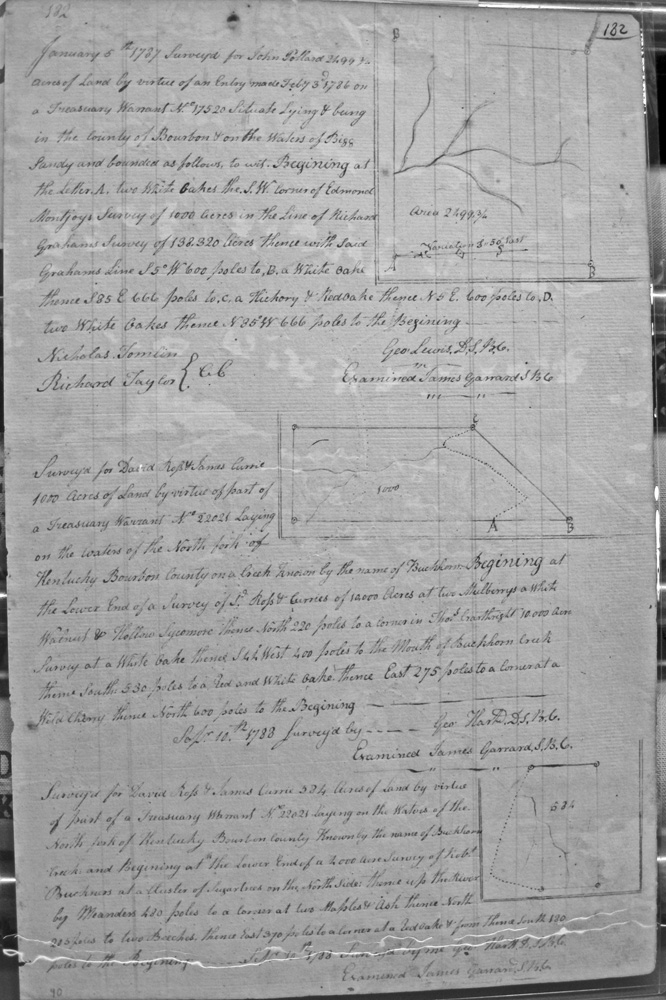 182
182
January 5th 1787 Surveyd for John Pollard 2499¾
acres of Land by virtue of an Entry made Feby 3d 1786 on
a Treasuary Warrant No. 17520 Situate Lying & being
in the County of Bourbon & on the Waters of Bigg
Sandy and bounded as follows, to wit. Begining at
the letter A. two White Oakes the S.W. Corner of Edmond
Montjoys Survey of 1000 Acres in the Line of Richard
Grahams Survey of 138.320 Acres thence with Said
Grahams Line S 5° W 600 poles to, B. a White Oake
thence S 85 E 666 poles to, C. a Hickory & Redoake thence N 5 E. 600 poles to, D.
two White Oakes thence N 85 W 666 poles to the Begining
Nicholas Tomlin
Richard Taylor } C.C
Geo Lewis, D.S.B.C.
Examined James Garrard S.B.C
B
Area 2499¾
Variation 5° 50' East
A
B
Surveyd for David Ross & James Currie
1000 Acres of Land by virtue of part of
a Treasuary Warrant No. 22021 Laying
on the waters of the North fork of
Kentucky Bourbon County on a Creek known by the name of Buckhorn Begining at
the Lower End of a Survey of Sd. Ross & Curries of 10.000 Acres at two Mulberrys a White
Walnut & Hollow Sycomore thence North 220 poles to a Corner in Thos. 10.000 Acre
Survey at a White Oake thence S 44 West 400 poles to the Mouth of Buckhorn Creek
thence South 530 poles to a Red and White Oake thence East 275 poles to a Corner at a
Wild Cherry thence North 600 poles to the Begining
Sepr. 10th 1788 Surveyd by Geo Hart D.S.B.C.
Examined James Garrard, S.B.C.
C
1000
A
B
Surveyd for David Ross & James Currie 534 Acres of Land by virtue
of part of a Treasuary Warrant No. 22021 Laying on the Waters of the
North fork of Kentucky Bourbon County Known by the name of Buckhorn
Creek and Begining at the Lower End of a 4000 Acre Survey of Robt.
Buckners at a Cluster of Sugartrees on the North Side thence up the River
by Meanders 420 poles to a Corner at two Maples & Ash thence North
poles to two Beeches, thence East 270 poles to a Corner at a Red oake & from thence South 180
poles to the Begining
Examined James Garrard, S.B.C.
534
90